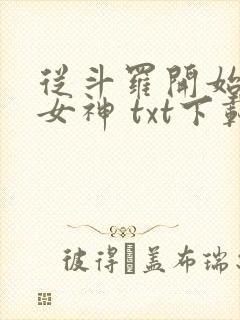 從斗羅開始
女神 txt下載
彼得·盖布瑞